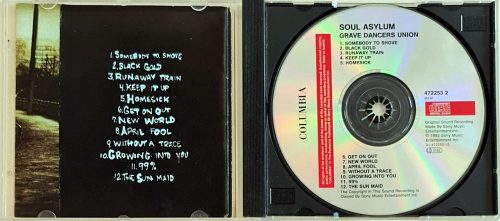 1.SOMEBODY TO SHOVE
2.BLACK GOLD
3.RUNAWAY TRAIN
4.KEEP IT UP
5.HOMESICK
6.GET ON OUT
7.NEW WORLD
8.APRIL FOOL
9.WITHOUT A TRACE
10.GROWING INTO YOU
11.99%
12.THE SUN MAID
SOUL ASYLUM
GRAVE DANCERS UNION
1. SOMEBODY TO SHOVE
2. BLACK GOLD
3. RUNAWAY TRAIN
4. KEEP IT UP
5. HOMESICK
COLUMBIA
472253 2
COMPACT
disc
DIGITAL AUDIO
Original Sound Recording
Made by Sony Music
Entertainment Inc.
℗ 1992 Sony Music
Entertainment Inc.
6. GET ON OUT
7. NEW WORLD
8. APRIL FOOL
9. WITHOUT A TRACE
10. GROWING INTO YOU
11. 99%
12. THE SUN MAID
The Copyright in This Sound Recording is
Owned by Sony Music Entertainment Inc.